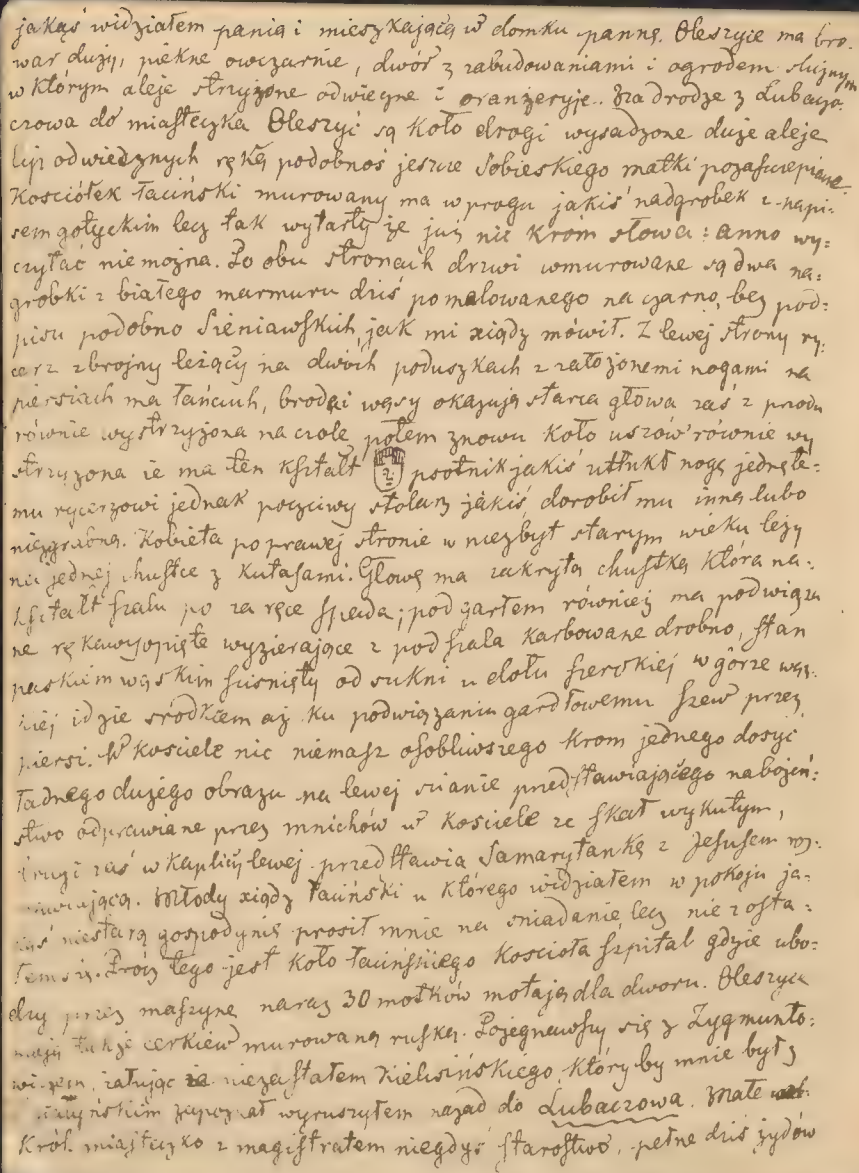 jakąś widziałem panią i mieszkającą w domku pannę. Oleszyce ma bro-
war duży, piękne owczarnie, dwór z zabudowaniami i ogrodem służnym
w którym aleje strzyżone odwieczne i oranżeryje. Na drodze z Lubacza-
czowa do miasteczka Oleszyc są koło drogi wysadzone duże aleje
lip odwiecznych ręką podobnoś jeszcze Sobieskiego matki pozaszczepiane.
Kościółek łaciński murowany ma w progu jakiś nadgrobek z napi-
sem gotyckim lecz tak wytarty że już nic króm słowa: anno wy:
czytać niemożna. Po obu stronach drzwi wmurowane są dwa na:
grobki z białego marmuru dziś pomalowanego na czarno, bez pod:
pisu podobno Sieniawskich, jak mi xiądz mówił. Z lewej strony ry:
cerz zbrojny leżący na dwóch poduszkach z założonemi nogami na
piersiach ma łańcuh, broda i wąsy okazują starca głowa zaś z przodu
równie wystrzyżona na czole, potem znowu koło uszów równie wy
strzyżona że ma ten kształt psotnik jakiś utłukł nogę jednę te:
mu rycerzowi jednak poczciwy stolarz jakiś dorobił mu inną lubo
niezgrabną. Kobieta po prawej stronie w niezbyt starym wieku leży
na jednej chustce z kutasami. Głowę ma zakrytą chustką która na:
kształt szalu po za ręce spada; pod gartem również ma podwiąza
ne rękawy opięte wyzierające z pod szala karbowane drobno, stan
paskiem wąskim ściśnięty od sukni u dołu szerokiej w górze wąz:
kiej idzie środkiem aż ku podwiązaniu gardłowemu szew przez
piersi. W kościele nic niemasz osobliwszego krom jednego dosyć
ładnego dużego obrazu na lewej scianie przedstawiającego nabożeń:
stwo odprawiane przez mnichów w kościele ze skał wykutym,
drugi zaś w kaplicy lewej przedstawia Samarytankę z Jesusem roz:
mawiającą. Młody xiądz łaciński u którego widziałem w pokoju ja:
kąś niestarą gospodynię prosił mnie na sniadanie, lecz nie zosta:
łem się. Prócz tego jest koło łacińskiego kościoła szpital gdzie ubo:
dzy przez maszynę naraz 30 motków motają dla dworu. Oleszyce
mają także cerkiew murowaną ruską. Pożegnawszy się z Zygmunto:
wiczem, żałując że niezastałem Kielisińskiego, który by mnie był z
zapoznał wyruszyłem nazad do Lubaczowa. Małe
Król. miasteczko z magistratem niegdyś starostwo, pełne dziś żydów